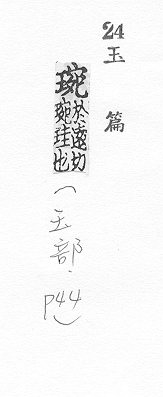 24
玉篇
琬
於遠切
琬珪也
（玉部．P44）